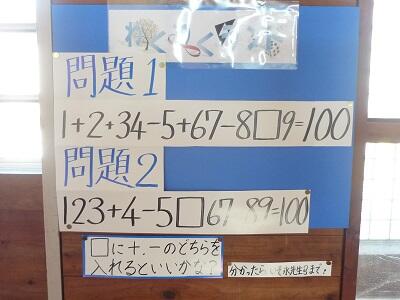 問題1
1+2+34-5+67-8□9=100
問題2
123+4-5□67-89=100
□に+.-のどちらを
入れるといいかな?
分かったら
先生まで!